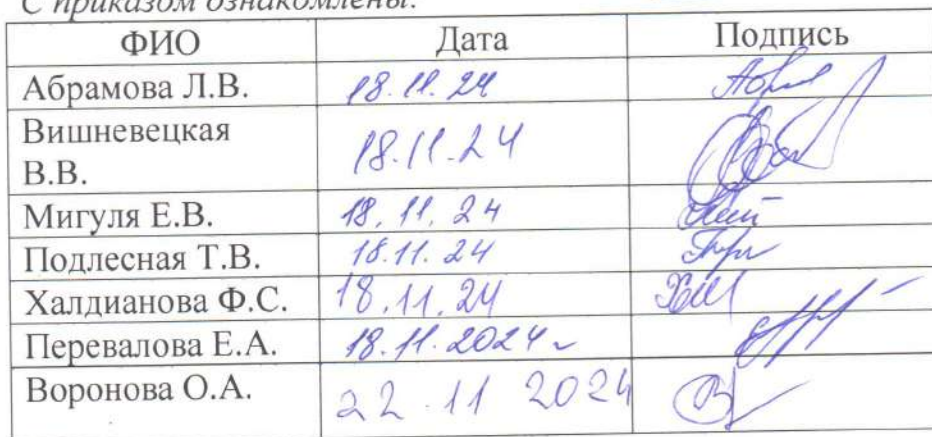 С приказом ознакомлены:
ФИО Дата Подпись
Абрамова Л.В. 18.11.24
Вишневецкая
В.В. 18.11.24
Мигуля Е.В. 18.11.24
Подлесная Т.В. 18.11.24
Халдианова Ф.С. 18.11.24
Перевалова Е.А. 18.11.2024г
Воронова О.А. 22.11 2024